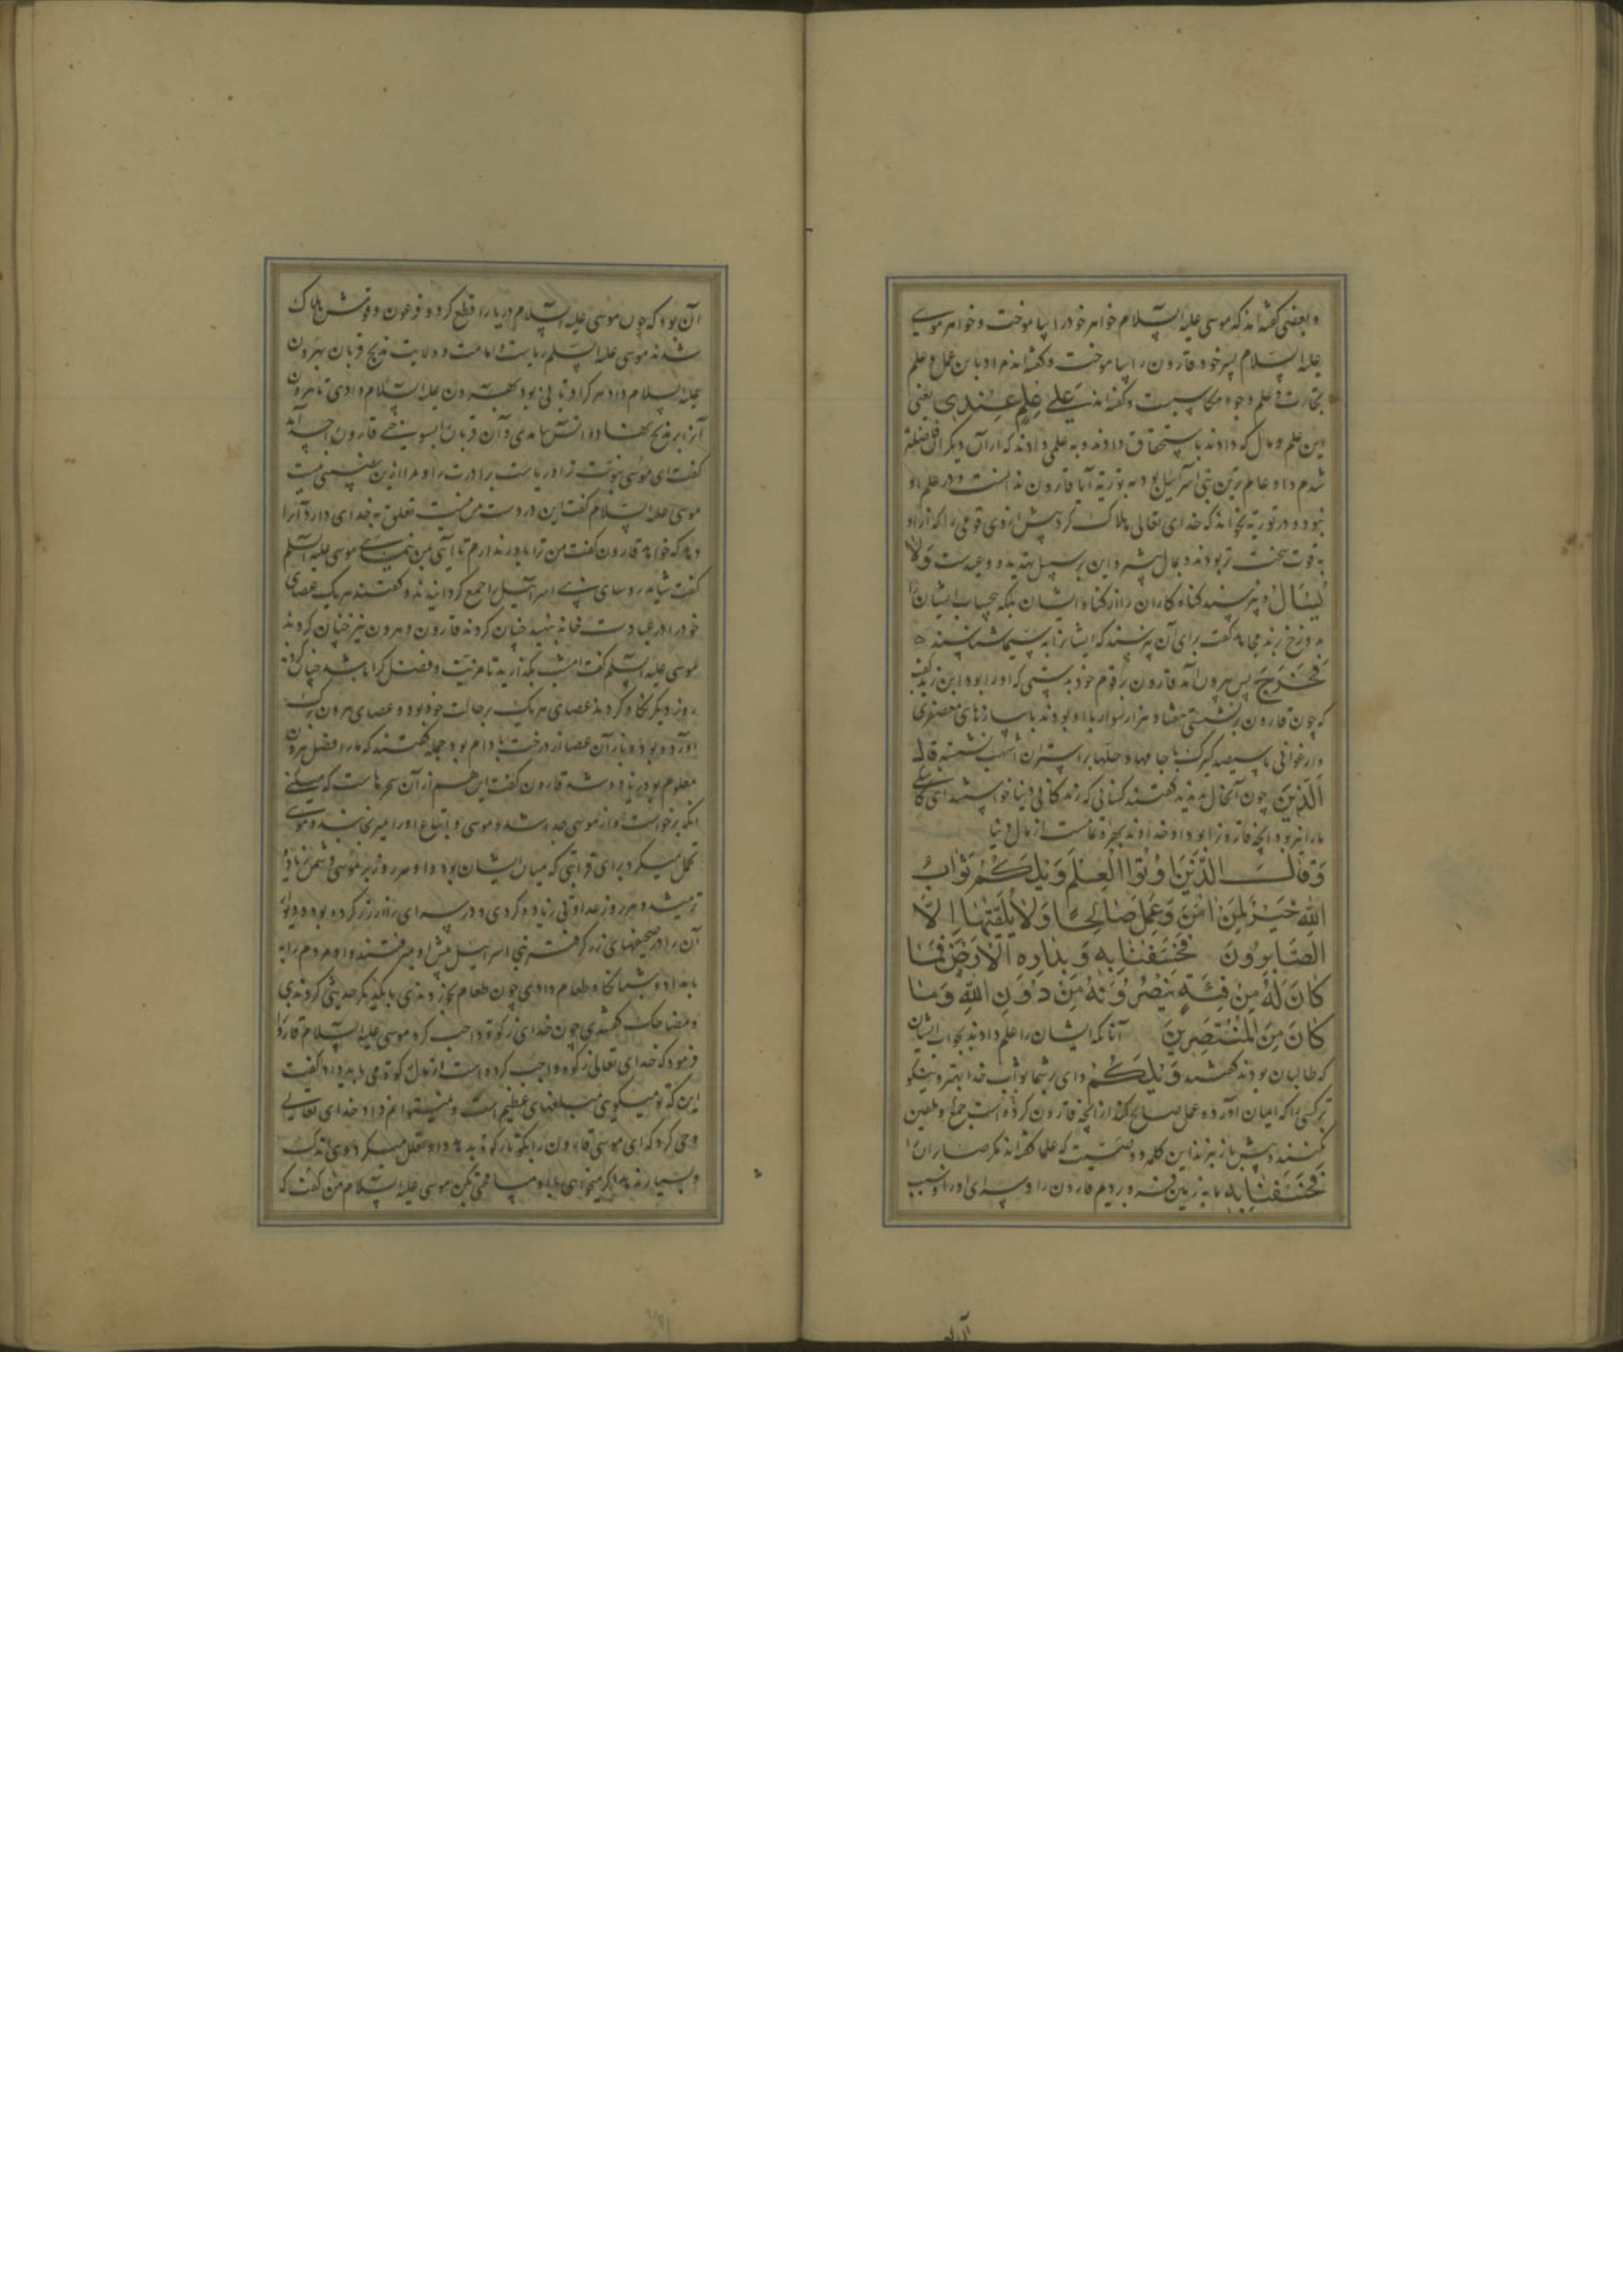 و بعضی گفته‌اند که موسی علیه السلام خواهر خود را بیاموخت و خواهر موسی
علیه السلام پسر خود قارون را بیاموخت و گفته‌اند مراد باین عمل و علم
تجارت و علم وجوه مکاسبست و گفته‌اند علی علم عندی یعنی
این علم و مال که دادند باستحقاق دادند و به علمی دادند که از آن دیگر
شدم و او عالم ترین بنی اسرائیل بود به توریة آیا قارون ندانست و در علم او
نبود و در توریة نخواند که خدای تعالی هلاک کرد پیش از وی قومی را که از او
به قوت سخت تر بودند و بمال بیشتر و این بر سبیل تهدید و وعیدست ولا
یسال و نپرسند گناه کاران را از گناه ایشان بلکه بیحساب ایشان را
به دوزخ برند مجاهد گفت برای آن نپرسند که ایشانرا به سیما شناسند
فخرج پس بیرون آمد قارون بر قوم خود به زینتی که او را بود ابن زید گفت
که چون قارون برنشستی هفتاد هزار سوار با او بودند با سازهای معصفری
و ارغوانی با سیصد کنیزک با جامها و حلیها بر استران اشهب نشسته قال
الذین چون آنحال بدیدند گفتند کسانی که زندگانی دنیا خواستند ای کاشکی
ما را نیز بود آنچه قارونرا بود او خداوند بهره تمامست از مال دنیا
وقال الذین اوتوا العلم ویلکم ثواب
الله خیر لمن امن وعمل صالحا ولا یلقیها الا
الصابرون فخسفنا به وبداره الارض فما
کان له من فئة ینصرونه من دون الله وما
کان من المنتصرین آنانکه ایشان را علم دادند بجواب ایشان
که طالبان بودند گفتند ویلکم وای بر شما ثواب خدا بهتر و نیکو
تر کسی را که ایمان آورد و عمل صالح کند از آنچه قارون کرده است جمع و تلقین
نکنند و پیش باز نبرند این کلمه و وصیت که علما گفته‌اند مگر صابران را
فخسفنا به ما به زمین فرو بردیم قارون را و سرای او را و سبب
آن بود
آن بود که چون موسی علیه السلام دریا را قطع کرد و فرعون و قومش هلاک
شدند موسی علیه السلام ریاست و امامت و ولایت مذبح قربان بهرون
علیه السلام داد هر که را قربانی بود بهرون علیه السلام دادی تا هرون
آنرا بر مذبح نهاد و آتش بیامدی و آن قربان بسوختی قارون را حسد آمد
گفت ای موسی نبوت ترا و ریاست برادرت را و مرا ازین نصیبی نیست
موسی علیه السلام گفت این در دست من نیست تعلق به خدای دارد آنرا
دهد که خواهد قارون گفت من ترا باور ندارم تا آیتی بمن ننمایی موسی علیه السلم
گفت شاید روسای بنی اسرائیل را جمع گردانیدند و گفتند هر یک عصای
خود را در عبادت خانه بنهید چنان کردند قارون و هرون نیز چنان کردند
موسی علیه السلم گفت امشب بگذارید تا مزیت و فضل کرا باشد چنان کردند
روز دیگر نگاه کردند عصای هر یک بر حالت خود بود و عصای هرون برگ
آورده بود و بار آن عصا از درخت بادام بود جمله گفتند که ما را فضل هرون
معلوم بود زیاده شد قارون گفت این هم از آن سحرهاست که میکنی
آنگه برخواست و از موسی جدا شد و موسی و اتباع او را میرنجانید و موسی
تحمل میکرد برای قرابتی که میان ایشان بود و او هر روز بر موسی دشمن زیاده
تر میشد و هر روز عداوتی زیاده کردی و در سرای را از زر کرده بود و دیوار
آن را در صحیفهای زر گرفته بنی اسرائیل پیش او میرفتند و او مردم را به
بامداد و شبانگاه طعام دادی چون طعام بخوردندی با یکدیگر حدیثی کردندی
و مضاحک گفتندی چون خدای زکوة واجب کرد موسی علیه السلام قارون را
فرمود که خدای تعالی زکوة واجب کرده است از مال زکوة می باید داد گفت
این که تو میگوی مبلغهای عظیم است و نمیتوانم داد خدای تعالی
وحی کرد که ای موسی قارون را بگو تا زکوة بدهد و او تعلل میکرد
موسی علیه السلام من گفت که